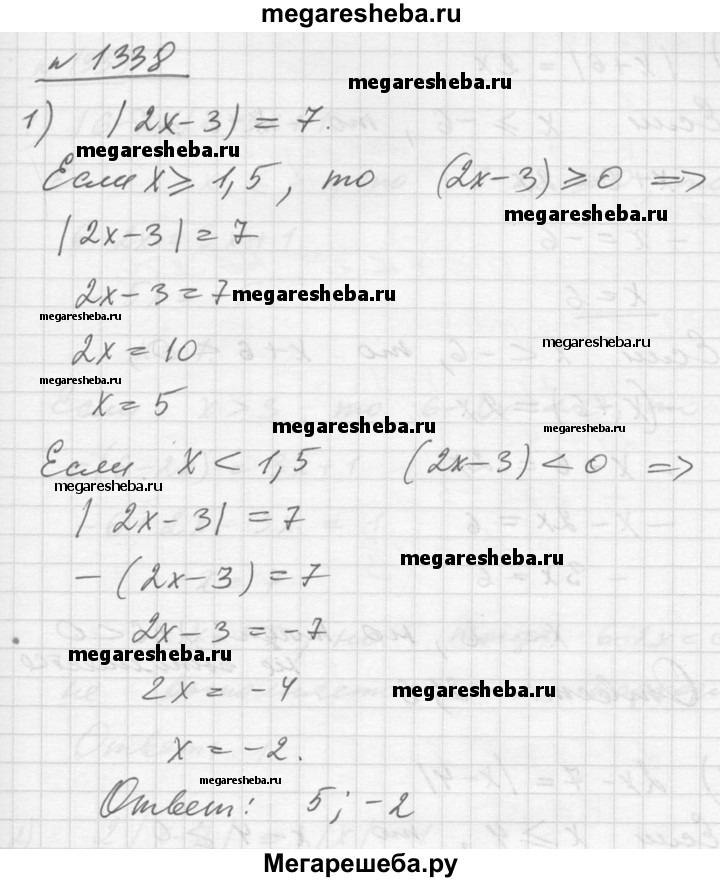 megaresheba.ru
№ 1338
megaresheba.ru
1) |2x-3| = 7.
megaresheba.ru
Если x ⩾ 1,5, то (2x-3) ⩾ 0 =>
megaresheba.ru
|2x-3| = 7
2x-3 = 7 megaresheba.ru
megaresheba.ru
2x = 10 megaresheba.ru
megaresheba.ru
x = 5
megaresheba.ru megaresheba.ru
Если x < 1,5 (2x-3) < 0 =>
megaresheba.ru
|2x-3| = 7
megaresheba.ru
-(2x-3) = 7
2x-3 = -7
megaresheba.ru
2x = -4 megaresheba.ru
x = -2.
megaresheba.ru
Ответ: 5; -2
Мегарешеба.ру